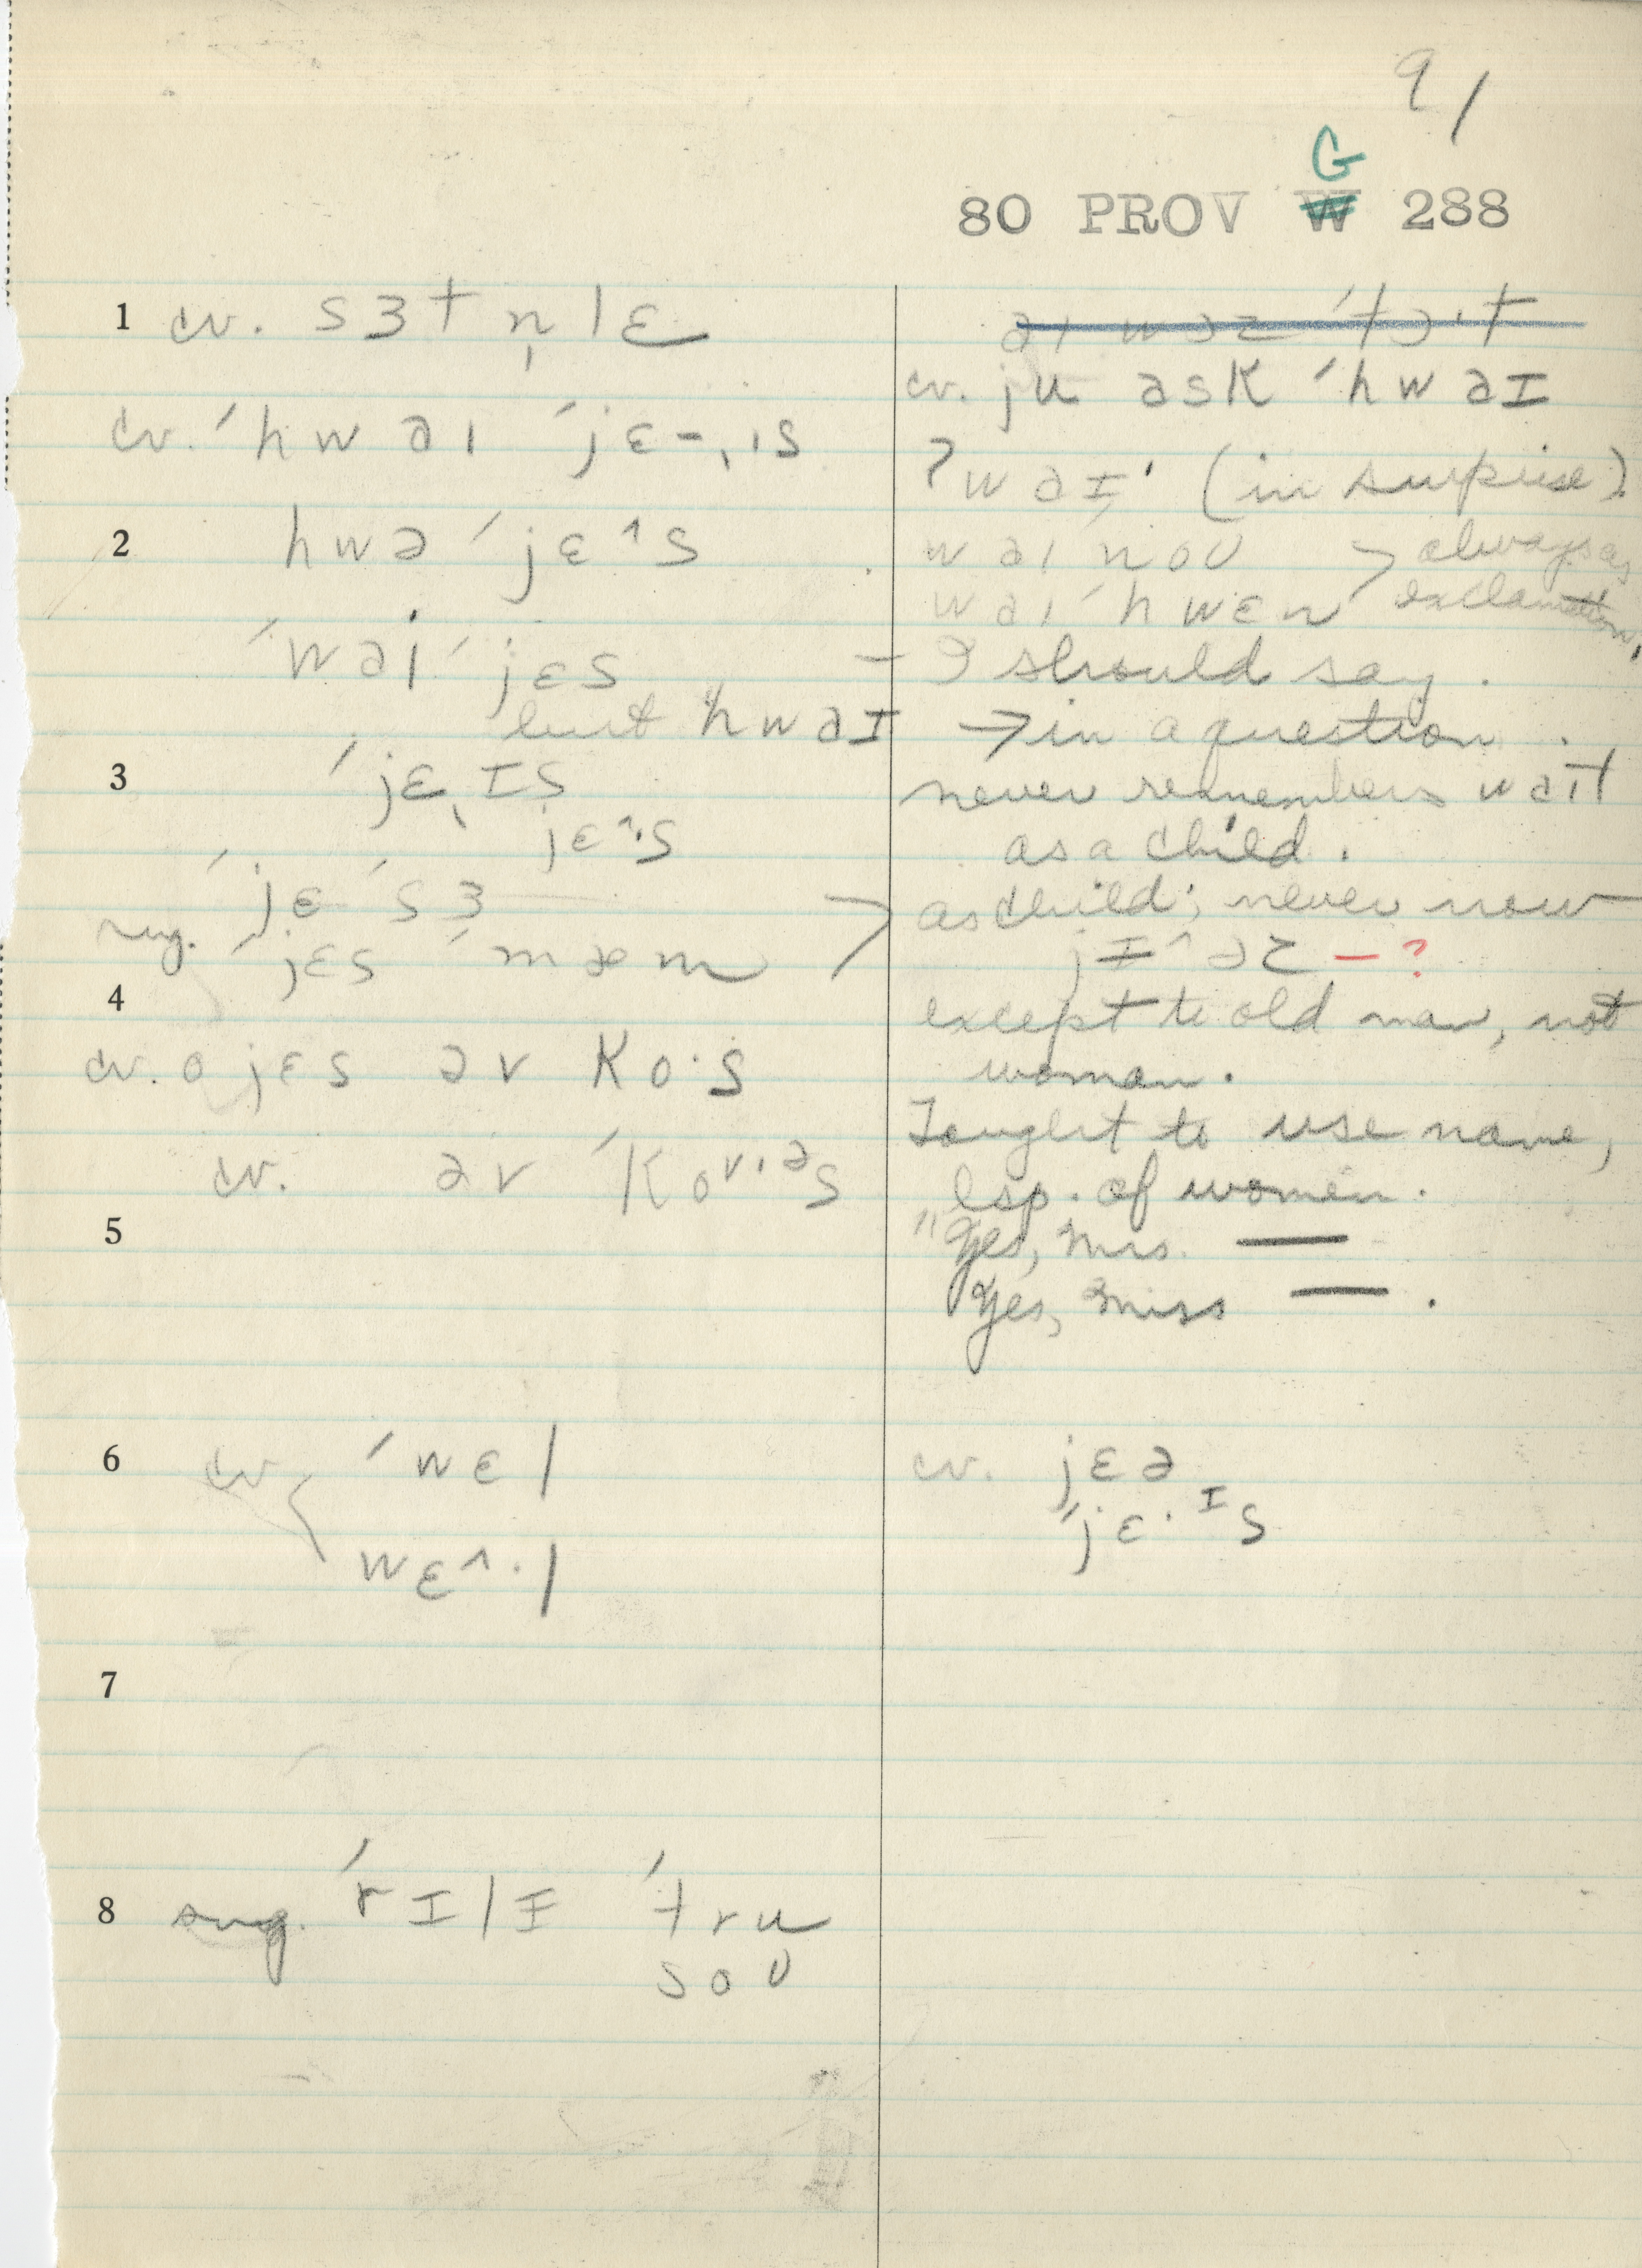 91
G
80 PROV W 288
1 cv. sɜtn̩lɛ
cv. ˈhwaɪ ˈjɛ-ˌɪs
2 hwə ˈjɛ^s
ˈwai ˈjɛs
but hwaɪ
3 ˈjɛˌɪs
jɛ^·s
ˈjɛ ˈsɜ
sug. ˈjɛs ˈmæm
4
cv. o jɛs əv ko·s
cv. əv ˈkoᵛ·ᵊs
5
6 cv ˈwɛl
wɛ^·l
7
8 sug. ˈrɪlɪ ˈtru
soʊ
aɪ wəz ˈtɔ·t
cv. ju ask ˈhwaɪ
ʔwaɪ' (in surprise).
waɪ ˈnoʊ > always as
waɪ ˈhwɛn exclamation,
– I should say.
→ in a question.
never remembers waɪt
as a child.
as child; never now
jɪ^əz – ?
except to old man, not
woman.
Taught to use name,
esp. of women.
"Yes, Mrs. —
Yes, Miss — .
cv. jɛə
ˈjɛ·ᴵs